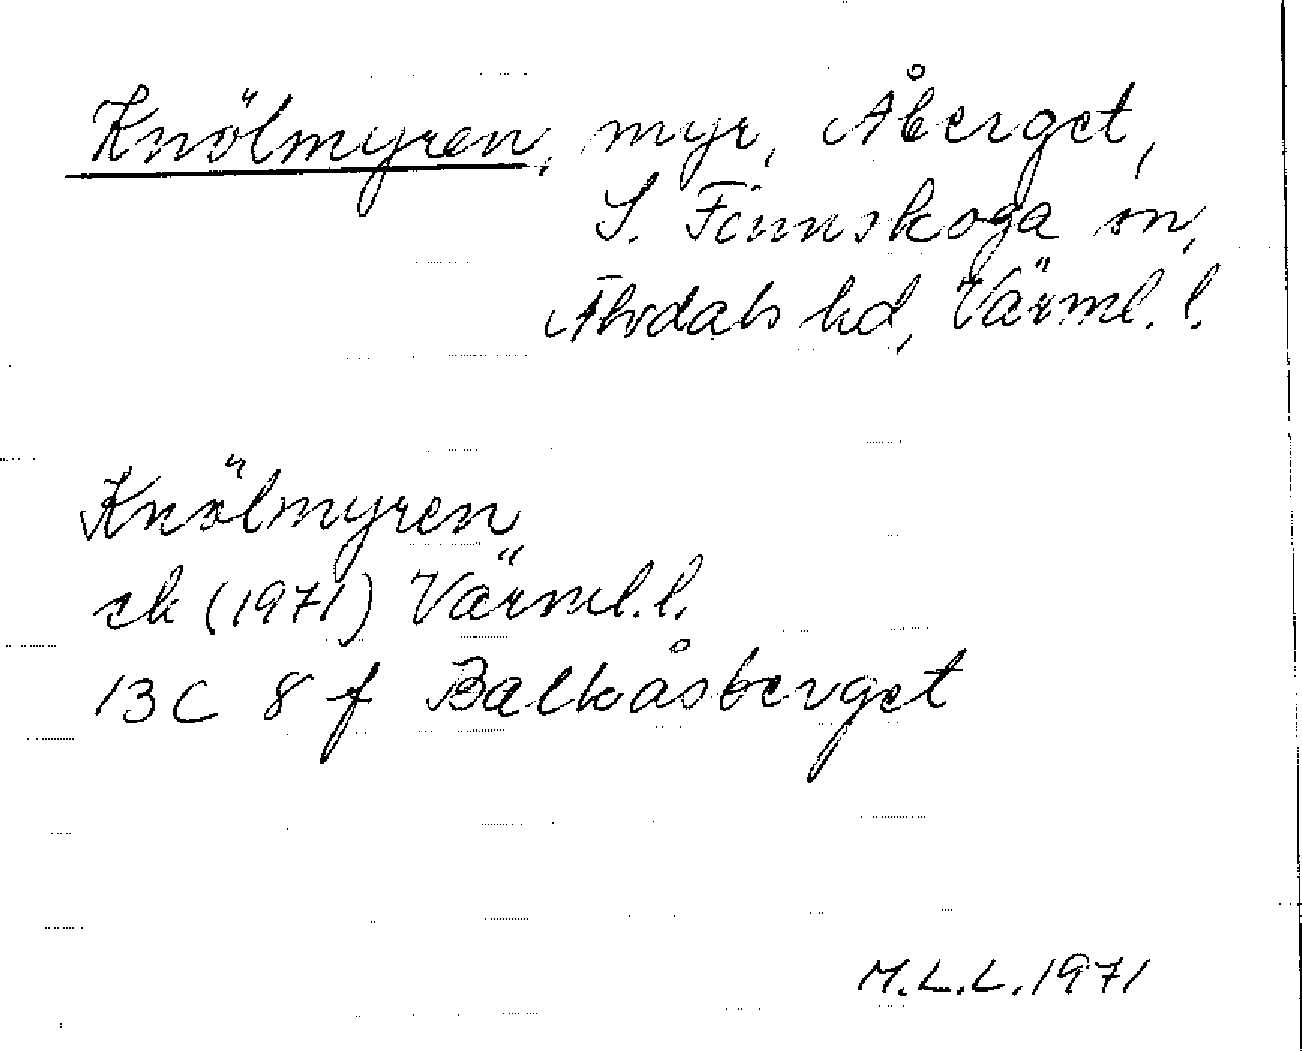 Knölmyren, myr, Åberget,
S. Finnskoga sn,
Älvdals hd, Värml. l.
Knölmyren
ek (1971) Värml. l.
13C 8 f Balkåsberget
M.L.L. 1971